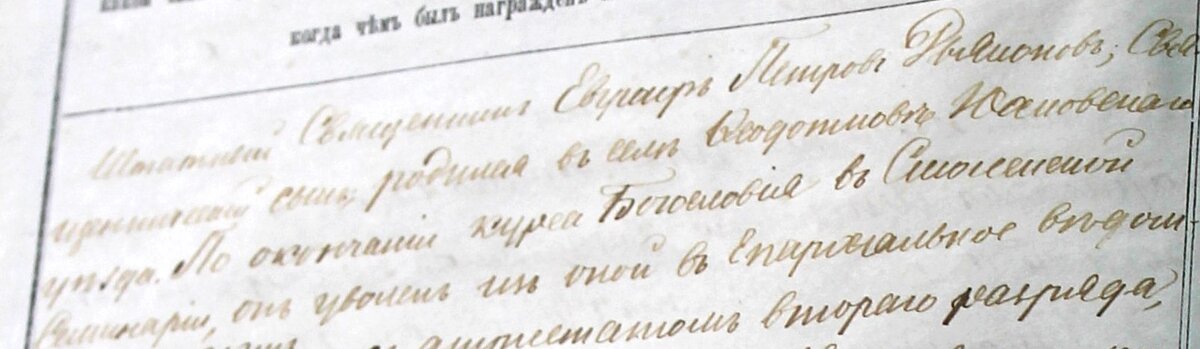 когда чѣмъ былъ награжденъ
Штатный Священникъ Евграфъ Петровъ Свя
щенническій сынъ, родился въ селѣ
уѣзда. По окончаніи курса Богословія въ Смоленской
Семинаріи, онъ уволенъ изъ оной въ Епархіальное вѣдом
аттестатомъ втораго разряда,